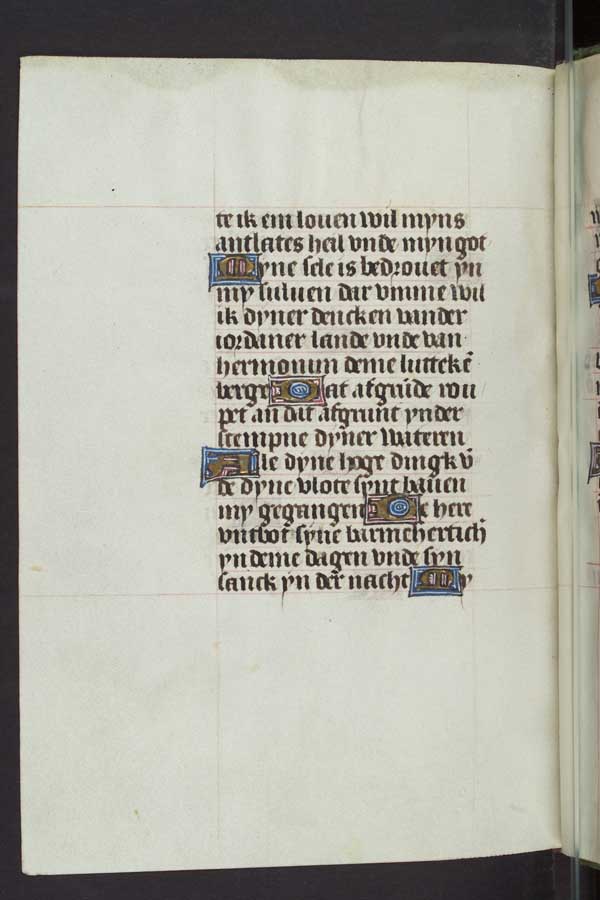 te ik em louen wil myns
antlates heil vnde myn got
Myne sele is bedrouet yn
my suluen dar vmme wil
ik dyner dencken van der
iordaner lande vnde van
hermonim deme luttekē
berge Dat afgrūde rou
pet an dat afgrunt yn der
stempne dyner wateren
Alle dyne hoge dingk vn̄
de dyne vlote synt bauen
my gegangen De here
vntbot syne barmherticħ
yn deme dagen vnde syn
sanck yn der nacht My